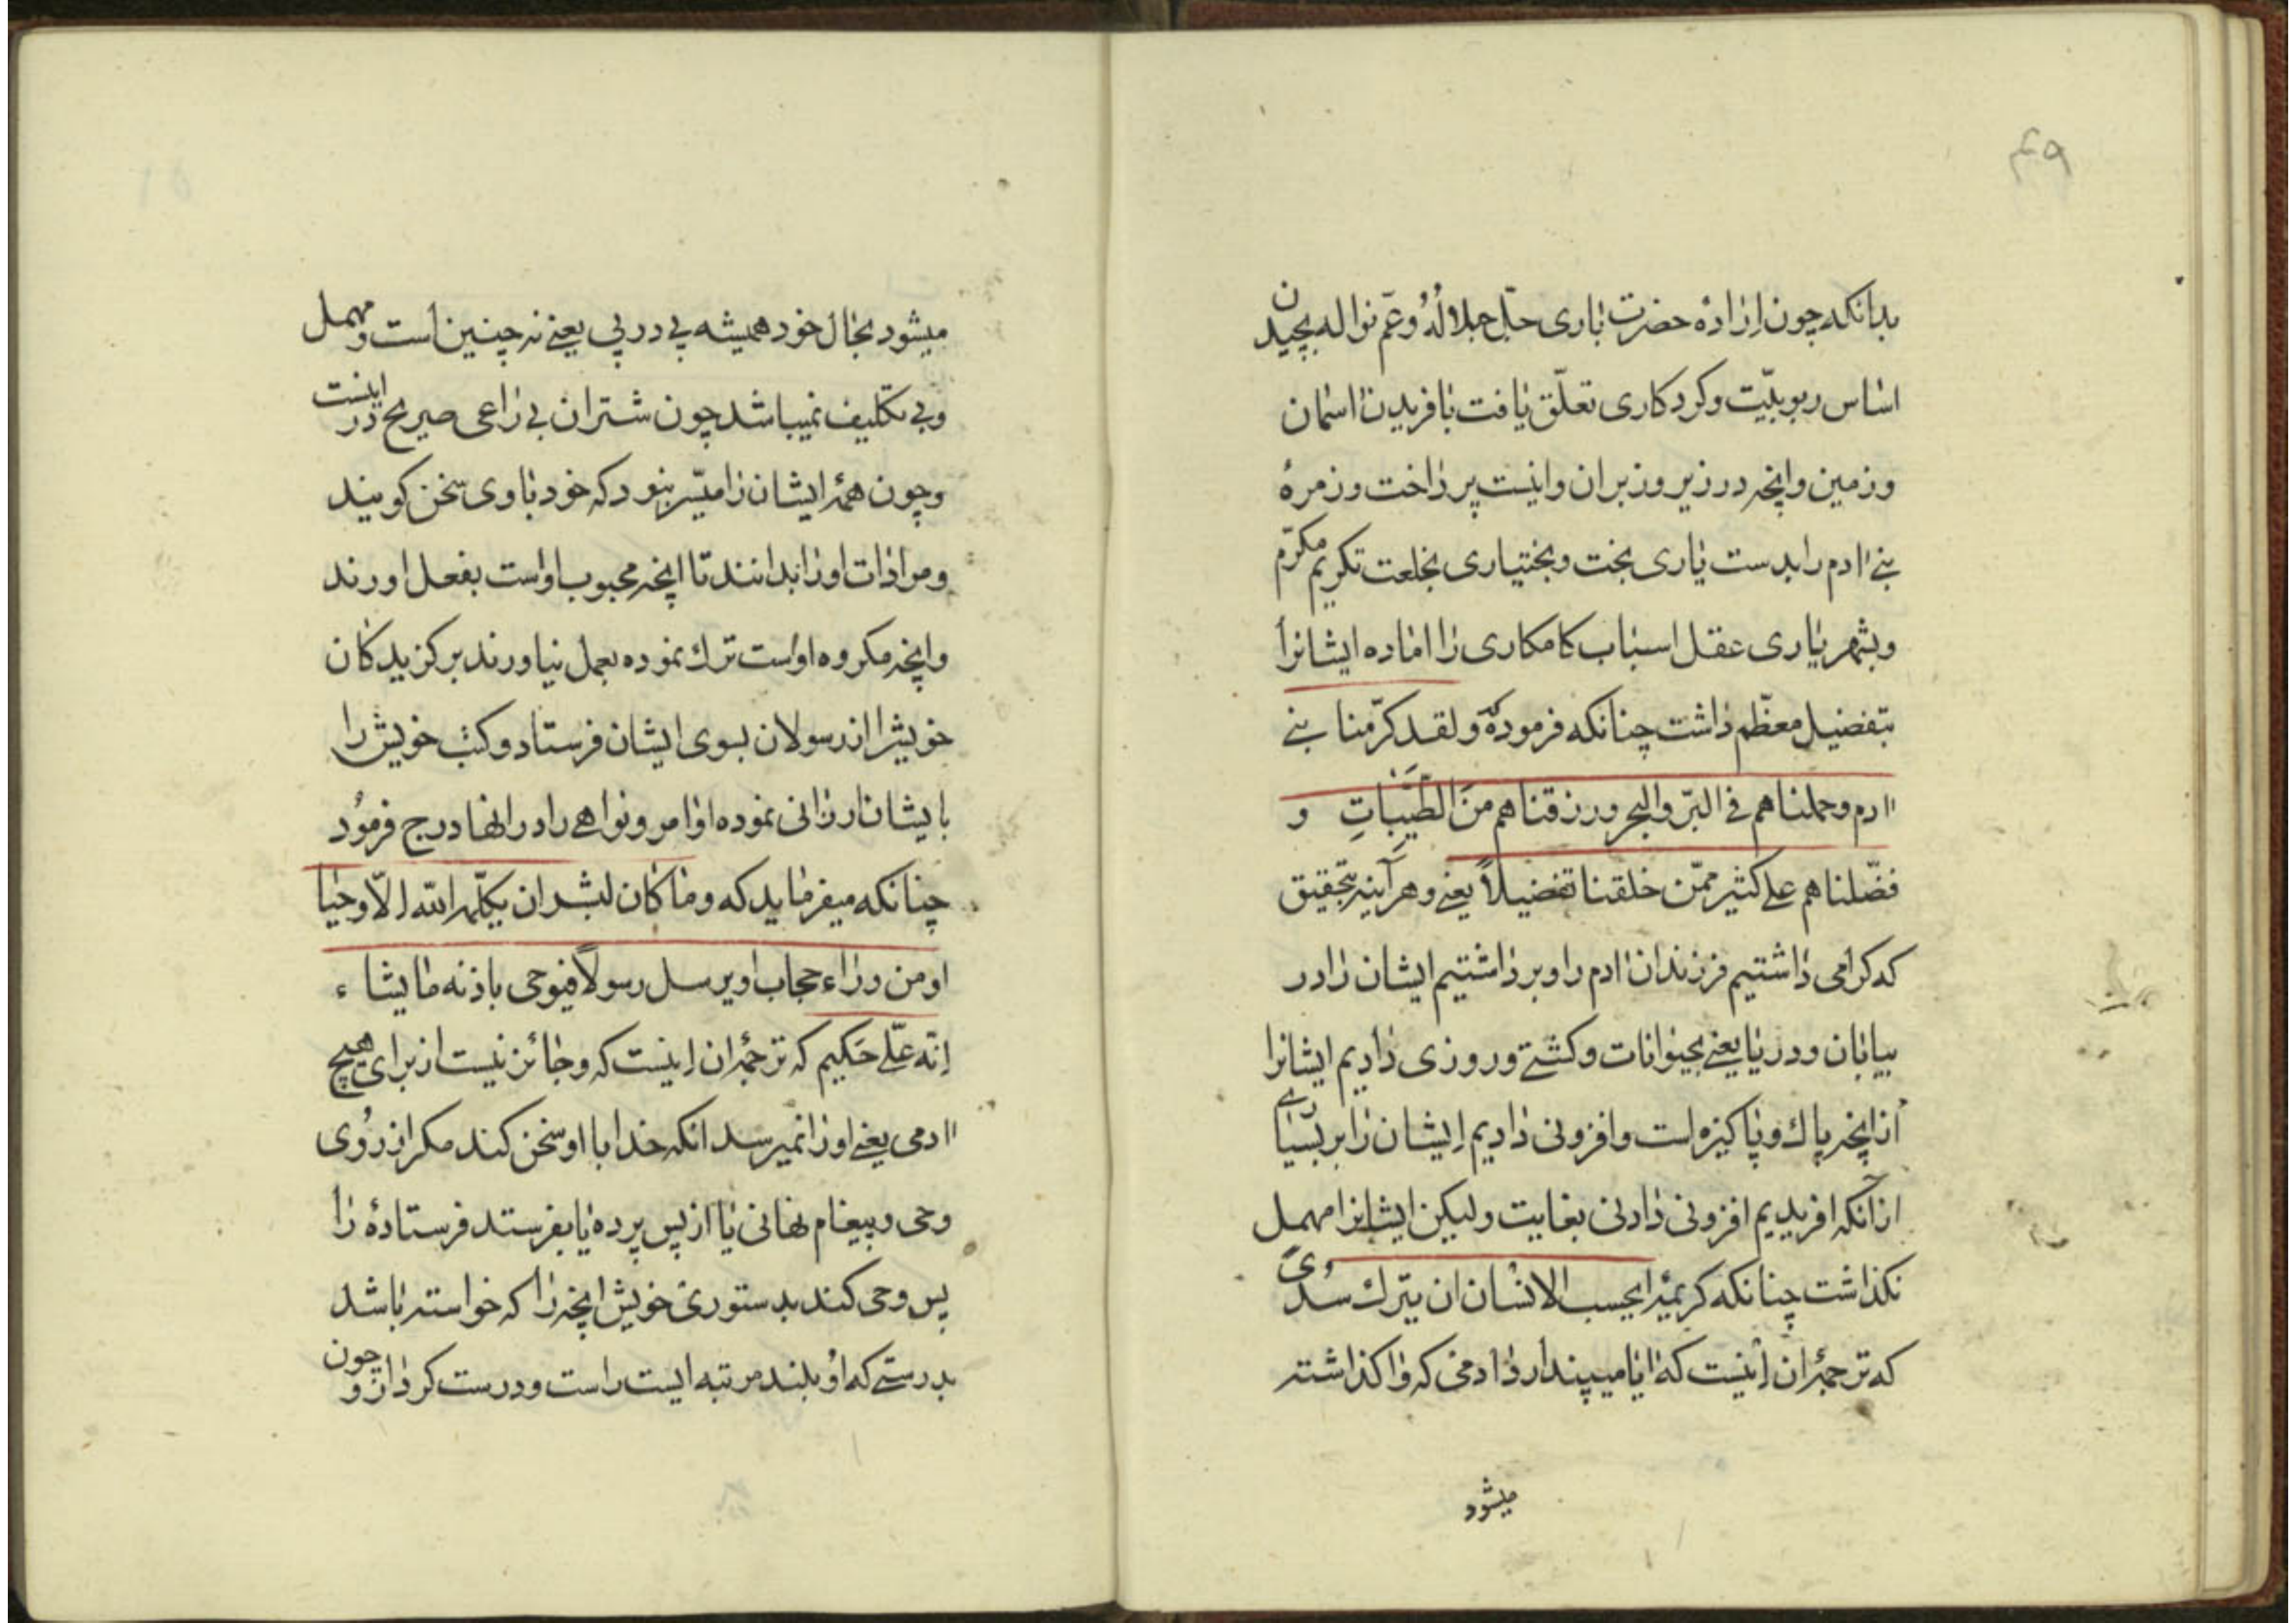 ۴۹
بدانکه چون ارادهٔ حضرت باری جلّ جلالُهُ وعمّ نواله بچیدن
اساس ربوبیّت وکردکاری تعلّق یافت بافریدن اسمان
وزمین وانچه در زیر وزبران وانیست پرداخت وزمرهٔ
بنے اادم را بدست یاری بخت وبختیاری بخلعت تکریم مکرّم
وبشهریاری عقل اسباب کامکاری را اماده ایشانرا
بتفضیل معظّم داشت چنانکه فرموده وَلقد کرّمنا بنے
اادم وحملناهم فے البرّ والبحر ورزقناهم مِنَ الطَّیِّباتِ و
فضّلناهم علے کثیر ممّن خلقنا تفضیلاً یعنے وهرآینه بتحقیق
که کرامی داشتیم فرزندان اادم را وبرداشتیم ایشان را در
بیابان ودریا یعنے بحیوانات وکشتے وروزی دادیم ایشانرا
ازانچه پاك وپاکیزه است وافزونی دادیم اِیشان را بر بسیارے
ازآنکه افریدیم افزونی دادنی بغایت ولیکن ایشانرا مهمل
نکذاشت چنانکه کریمهٔ ایحسب الانسان ان یترك سُدیً
که ترجمهٔ ان اینست که ایا میپندارد ادمی که واکذاشته
میشود
میشود بحال خود همیشه پے در پی یعنے نه چنین است ومهمل
وبی تکلیف نمیباشد چون شتران بے راعی صریح در اینست
وچون همهٔ ایشان را میّسر نبود که خود باوی سخن کویند
ومرادات او را بدانند تا انچه محبوب اواست بفعل اورند
وانچه مکروه اوٴاست ترك نموده بعمل نیاورند برکزیدکان
خویشرا از رسولان بسوی ایشان فرستاد وکتب خویش را
بایشان ارزانی نموده اوامر ونواهے را در انها درج فرمُود
چنانکه میفرماید که وما کان لبشر ان یکلّمه اللّه الّا وحیا
او من وراء حجاب او یرسل رسولاً فیوحی باذنه ما یشاء
انّه علّے حَکیم که ترجمهٔ ان اینست که وجائز نیست از برای هیچ
اادمی یعنے او را نمیرسد انکه خدا با او سخن کند مکر از رُوی
وحی وپیغام نهانی یا از پس پرده یا بفرستد فرستادهٔ را
پس وحی کند بدستوری خویش انچه را که خواسته باشد
بدرستے که اوُ بلند مرتبه ایست راست ودرست کردار وچون